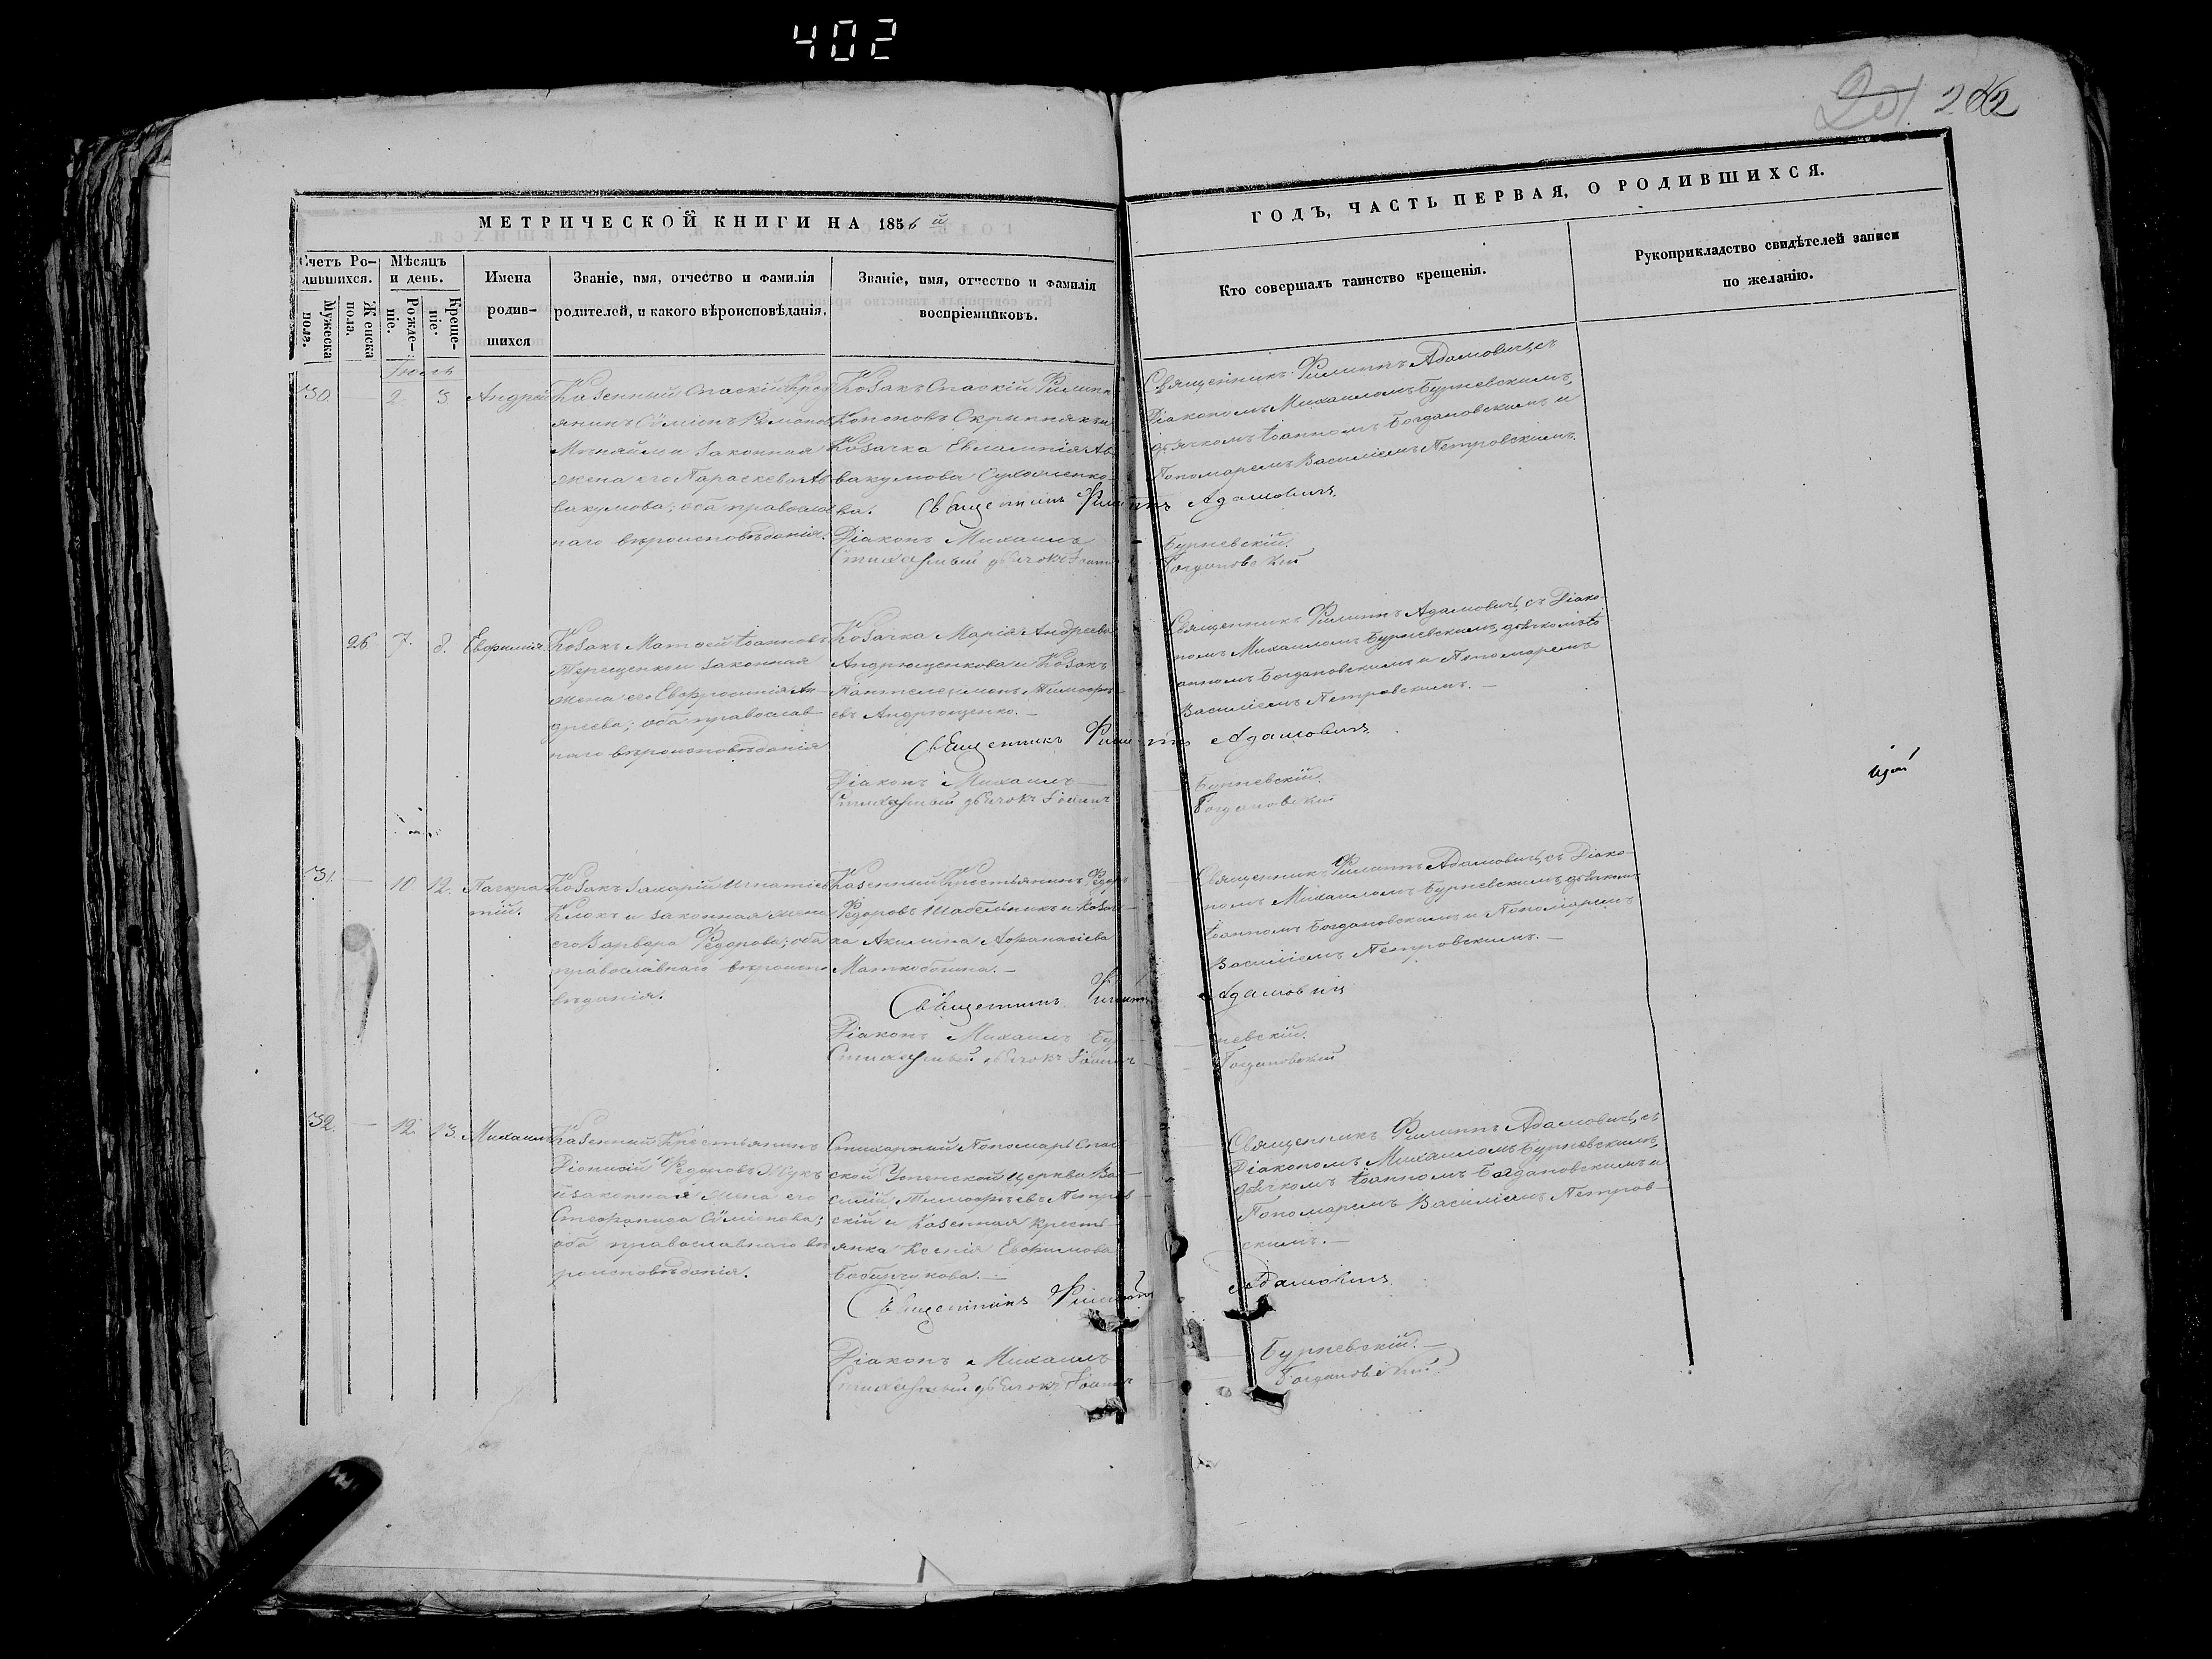 402
201. 202
МЕТРИЧЕСКОЙ КНИГИ НА 1856 й
ГОДЪ, ЧАСТЬ ПЕРВАЯ, О РОДИВШИХСЯ.
Счетъ Ро-
дившихся.
Мужеска
пола.
Женска
пола.
Мѣсяцъ
и день.
Рожде-
ніе.
Креще-
ніе.
Имена
родив-
шихся
Званіе, имя, отчество и фамилія
родителей, и какого вѣроисповѣданія.
Званіе, имя, отчество и фамилія
воспріемниковъ.
Кто совершалъ таинство крещенія.
Рукоприкладство свидѣтелей записи
по желанію.
Іюль
30. — 2. 3 Андрей
Казенный Спаскій Крест
янинъ Сѵміонъ Романов
и законная
жена его Параскева Ав
вакумова; оба православ
наго вѣроисповѣданія.
Козакъ Спаскій Филиппъ
Кононовъ Скрипникъ и
Козачка Евлампія Ав
вакумова
ва.
Священникъ Филиппъ Адамовичъ
Діаконъ Михаилъ Бурневскій.
Стихарный дьячокъ Іоаннъ Богдановскій
Священникъ Филиппъ Адамовичъ, съ
Діакономъ Михаиломъ Бурневскимъ,
дьячкомъ Іоанномъ Богдановскимъ и
Пономаремъ Василіемъ Петровскимъ.
26 7. 8. Евфимія
Козакъ Матфей Іоанновъ
Терещенко и законная
жена его Евфросинія Ан-
дреева; оба православ-
наго вѣроисповѣданія
Козачка Марія Андреева
Андрющенкова и Козакъ
Пантелеимонъ Тимофѣ-
евъ Андрющенко. —
Священникъ Филиппъ Адамовичъ
Діаконъ Михаилъ — Бурневскій.
Стихарный дьячокъ Іоаннъ Богдановскій
Священникъ Филиппъ Адамовичъ, съ Діако-
номъ Михаиломъ Бурневскимъ, дьячкомъ Іо
анномъ Богдановскимъ и Пономаремъ
Василіемъ Петровскимъ. —
31. — 10 12. Панкра-
тій.
Козакъ Захарій Игнатіев
Клокъ и законная жена
его Варвара Федорова; оба
православнаго вѣроиспо
вѣданія.
Казенный Крестьянинъ Федоръ
Федоровъ Шабельникъ и Козач-
ка Акилина Афанасіева
Священникъ Филиппъ Адамовичъ
Діаконъ Михаилъ Бурневскій.
Стихарный дьячокъ Іоаннъ Богдановскій
Священникъ Филиппъ Адамовичъ, съ Діако-
номъ Михаиломъ Бурневскимъ, дьячкомъ
Іоанномъ Богдановскимъ и Пономаремъ
Василіемъ Петровскимъ. —
32. — 12. 13. Михаилъ
Казенный Крестьянинъ
Діонисій Федоровъ Жукъ
и законная жена его
Стефанида Сѵміонова;
оба православнаго вѣ
роисповѣданія.
Стихарный Пономарь Спас
ской Успенской церкви Ва-
силій Тимофѣевъ Петров
скій и Казенная Кресть-
янка Ксенія Евфимова
Священникъ Филиппъ Адамовичъ
Діаконъ Михаилъ Бурневскій. —
Стихарный дьячокъ Іоаннъ Богдановскій
Священникъ Филиппъ Адамовичъ, съ
Діакономъ Михаиломъ Бурневскимъ,
дьячкомъ Іоанномъ Богдановскимъ и
Пономаремъ Василіемъ Петров-
скимъ. —